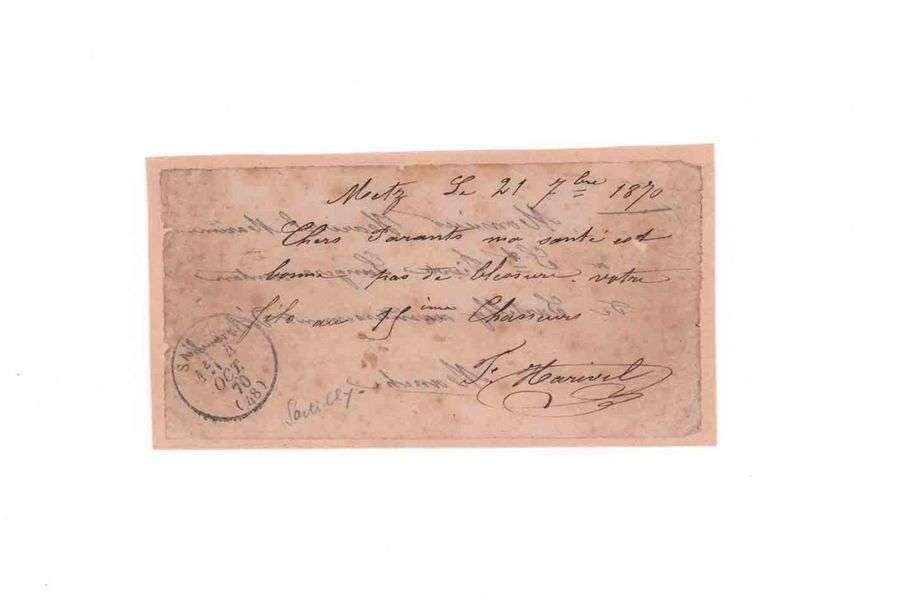 Metz Le 21 7bre 1870
Chers Parants ma santé est
bonne pas de blessure votre
fils au 15ième Chasseurs
F. Harivel
Sartilly
OCT.
70
(48)